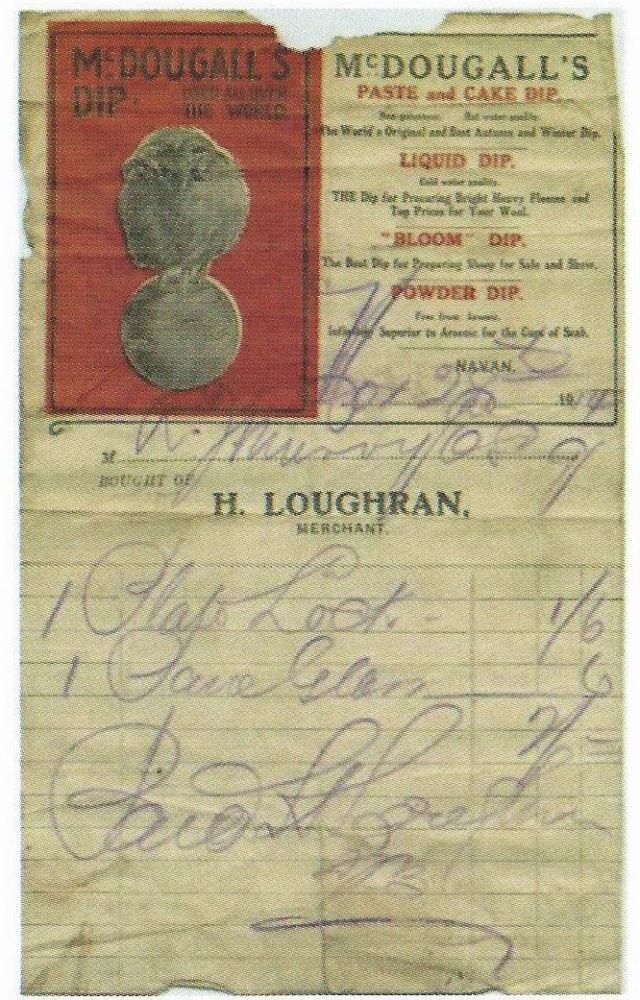 McDOUGALL'S
DIP. USED ALL OVER
THE WORLD.
McDOUGALL'S
PASTE and CAKE DIP.
Non-poisonous. Hot water quality.
The World's Original and Best Autumn and Winter Dip.
LIQUID DIP.
Cold water quality.
THE Dip for Procuring Bright Heavy Fleeces and
Top Prices for Your Wool.
"BLOOM" DIP.
The Best Dip for Preparing Sheep for Sale and Show.
POWDER DIP.
Free from Arsenic.
Infinitely Superior to Arsenic for the Cure of Scab.
NAVAN,
191
M
BOUGHT OF
H. LOUGHRAN,
MERCHANT.
1 Lock. - 1/6
1 Glass 6
2/=
Paid